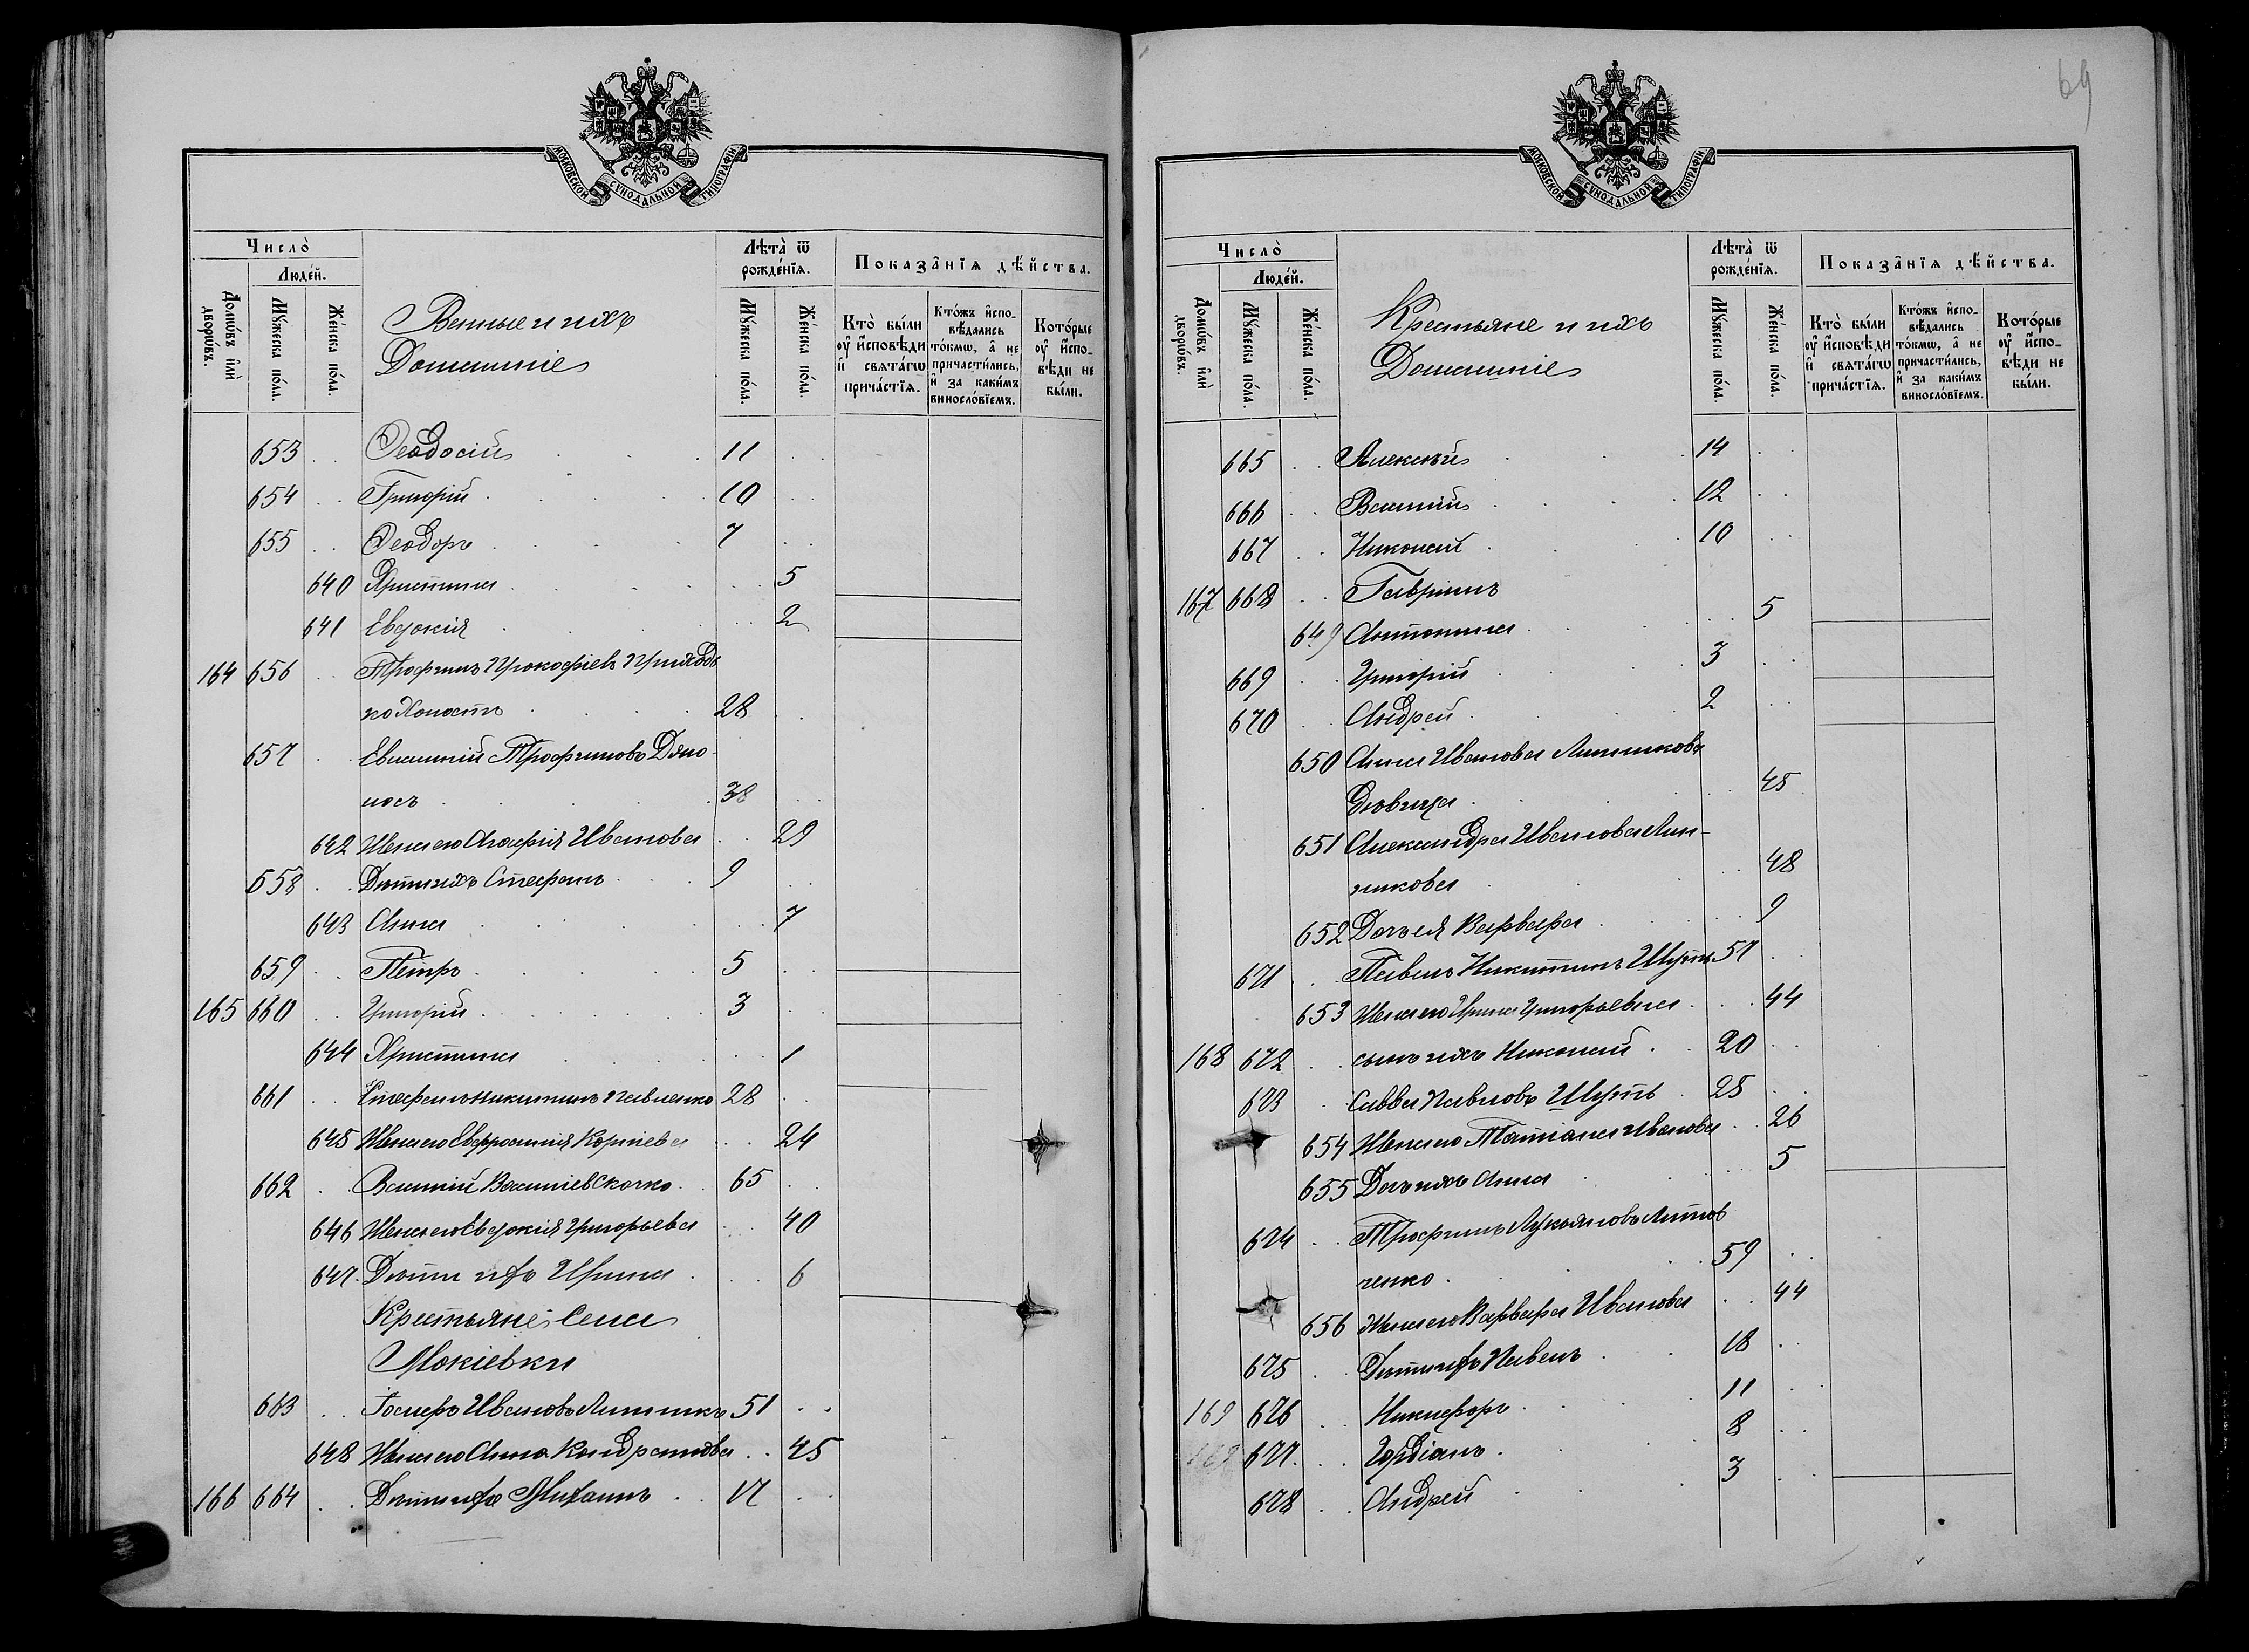 МОСКОВСКОЙ СУНОДАЛЬНОЙ ТИПОГРАФІИ
Число̀
Люде́й.
Домѡ́въ и҆лѝ дворѡ́въ.
Мꙋ́жеска по́ла.
Же́нска по́ла.
Военные и ихъ
Домашніе
Лѣта̀ ѿ рожде́нїѧ.
Мꙋ́жеска по́ла.
Же́нска по́ла.
Показа̑нїѧ дѣ́йства.
Кто̀ бы́ли ᲂу҆ и҆сповѣ́ди и҆ свѧта́гѡ прича́стїѧ.
Кто́жъ и҆сповѣ́дались то́кмѡ, а҆ не причасти́лись, и҆ за каки́мъ виносло́вїемъ.
Кото́рые ᲂу҆ и҆сповѣ́ди не бы́ли.
653 Ѳеодосій 11
654 Григорій 10
655 Ѳеодоръ 7
640 Христина 5
641 Евдокія 2
164 656 Трофимъ Прокофіевъ Приходь
ко Холостъ 28
657 Евлампій Трофимовъ
носъ 38
642 Жена его Агафія Иванова 29
658 Дѣти ихъ Стефанъ 9
643 Анна 7
659 Петръ 5
165 660 Григорій 3
644 Христина 1
661 Стефанъ Никитинъ Павленко 28
645 Жена его Евфросинія Корніева 24
662 Василій Василіевъ 65
646 Жена его Евдокія Григорьева 40
647 Дѣти ихъ Ирина 6
Крестьяне Села
Мокіевки
663 Ивановъ Линникъ 51
648 Жена его Анна Кондратова 45
166 664 Дѣти ихъ Михаилъ 17
69
МОСКОВСКОЙ СУНОДАЛЬНОЙ ТИПОГРАФІИ
Число̀
Люде́й.
Домѡ́въ и҆лѝ дворѡ́въ.
Мꙋ́жеска по́ла.
Же́нска по́ла.
Крестьяне и ихъ
Домашніе
Лѣта̀ ѿ рожде́нїѧ.
Мꙋ́жеска по́ла.
Же́нска по́ла.
Показа̑нїѧ дѣ́йства.
Кто̀ бы́ли ᲂу҆ и҆сповѣ́ди и҆ свѧта́гѡ прича́стїѧ.
Кто́жъ и҆сповѣ́дались то́кмѡ, а҆ не причасти́лись, и҆ за каки́мъ виносло́вїемъ.
Кото́рые ᲂу҆ и҆сповѣ́ди не бы́ли.
665 Алексѣй 14
666 Василій 12
667 Николай 10
167 668 Гавріилъ
649 Антонина 5
669 Григорій 3
670 Андрей 2
650 Анна Иванова Линникова
Вдовица 45
651 Александра Иванова Лин-
никова 48
652 Дочь ея Варвара 9
671 Павелъ Никитинъ Шутъ 51
653 Жена его Ирина Григорьевна 44
168 672 сынъ ихъ Николай 20
673 Савва Павловъ Шутъ 25
654 Жена его Татіана Иванова 26
655 Дочь ихъ Анна 5
674 Трофимъ Лукьяновъ Литов
ченко 59
656 Жена его Варвара Иванова 44
675 Дѣти ихъ Павелъ 18
169 676 Никифоръ 11
677 Гордіанъ 8
678 Андрей 3